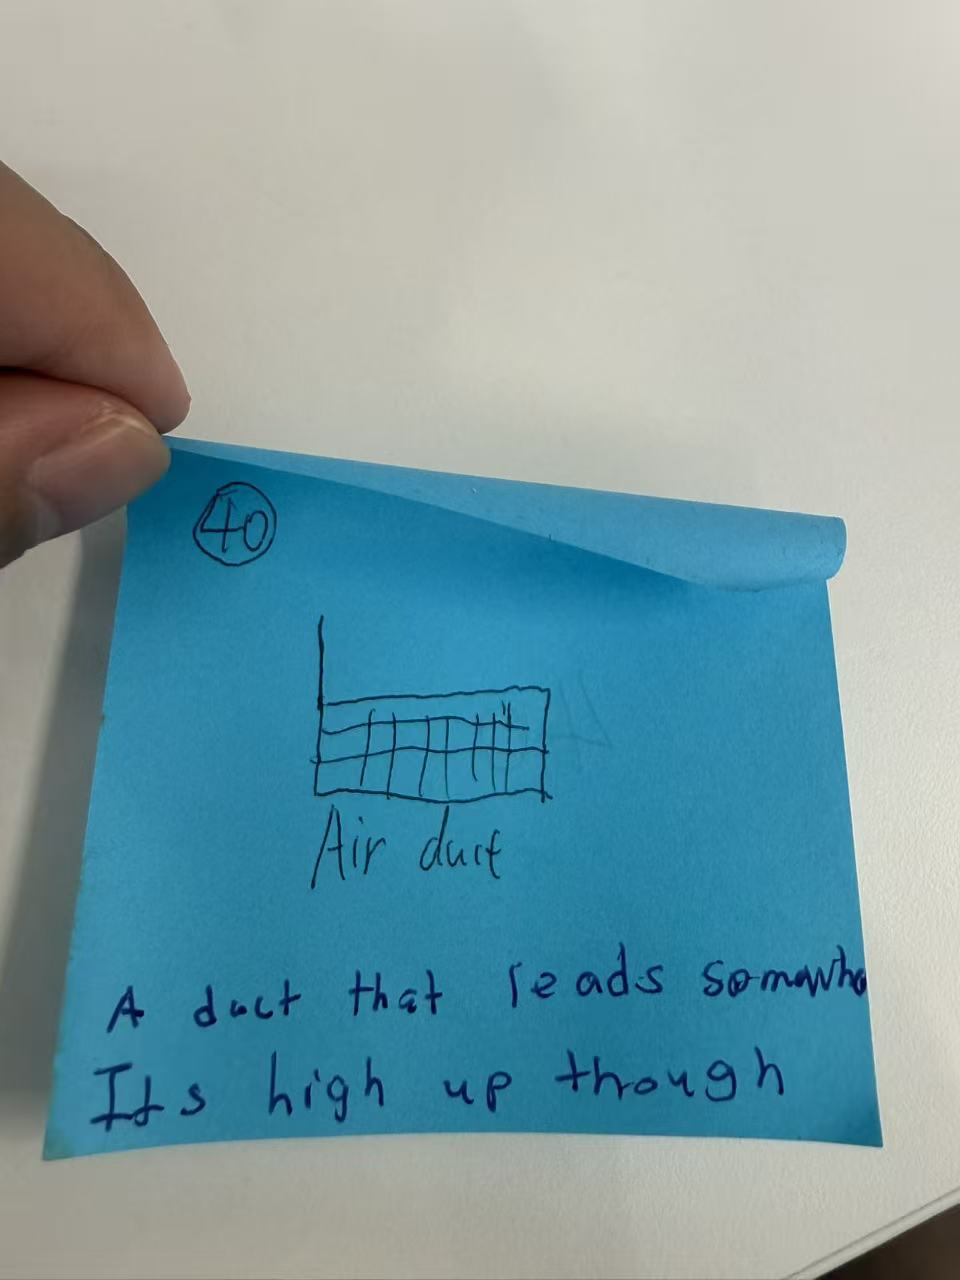 40
Air duct
A duct that leads somewhe
Its high up though